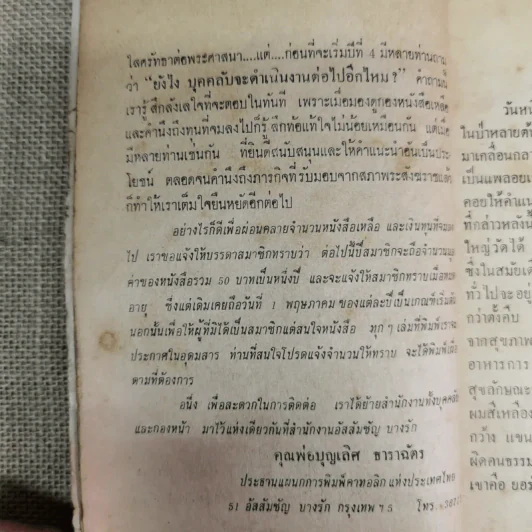 โสศรัทธาต่อพระศาสนา....แต่....ก่อนที่จะเริ่มปีที่ 4 มีหลายท่านถาม
ว่า "ยังไง บุคคลับจะดำเนินงานต่อไปอีกไหม?" คำถามนี้
เรารู้สึกลังเลใจที่จะตอบในทันที เพราะเมื่อมองดูกองหนังสือเหลือ
และคำนึงถึงทุนที่จมลงไปก็รู้สึกท้อแท้ใจไม่น้อยเหมือนกัน แต่เมื่อ
มีหลายท่านเช่นกัน ที่ยินดีสนับสนุนและให้คำแนะนำอันเป็นประ
โยชน์ ตลอดจนคำนึงถึงภารกิจที่รับมอบจากสภาพระสังฆราชแล้ว
ก็ทำให้เราเต็มใจยืนหยัดอีกต่อไป
อย่างไรก็ดีเพื่อผ่อนคลายจำนวนหนังสือเหลือ และเงินทุนที่จม
ไป เราขอแจ้งให้บรรดาสมาชิกทราบว่า ต่อไปนี้ปีสมาชิกจะถือจำนวน
ค่าของหนังสือรวม 50 บาทเป็นหนึ่งปี และจะแจ้งให้สมาชิกทราบเมื่อ
อายุ ซึ่งแต่เดิมเคยถือวันที่ 1 พฤษภาคม ของแต่ละปีเป็นเกณฑ์เริ่มต้น
นอกนั้นเพื่อให้ผู้ที่มิได้เป็นสมาชิกแต่สนใจหนังสือ ทุก ๆ เล่มที่พิมพ์เราจะ
ประกาศในอุดมสาร ท่านที่สนใจโปรดแจ้งจำนวนให้ทราบ จะได้พิมพ์เผื่อ
ตามที่ต้องการ
อนึ่ง เพื่อสะดวกในการติดต่อ เราได้ย้ายสำนักงานทั้งบุคคลับ
และกองหน้า มาไว้แห่งเดียวกันที่สำนักงานอัสสัมชัญ บางรัก
คุณพ่อบุญเลิศ ธาราฉัตร
ประธานแผนกการพิมพ์คาทอลิกแห่งประเทศไทย
51 อัสสัมชัญ บางรัก กรุงเทพ ฯ 5 โทร.
วันหนึ่
ในป่าหลายต้
มาเคลื่อนกลา
เป็นแพลอยเ
คอยให้คำแน
ที่กล่าวหลังนั้
ใหญ่วัดได้
ซึ่งในสมัยเดิ
ทั่วไปจะอยู่
กว่าตั้งคืบ
ขาดสุขภาพ
อาหารการ
สุขลักษณะ
ผมสีเหลือง
กว้าง แขน
ผิดคนธรรม
เขาคือ ยอร์